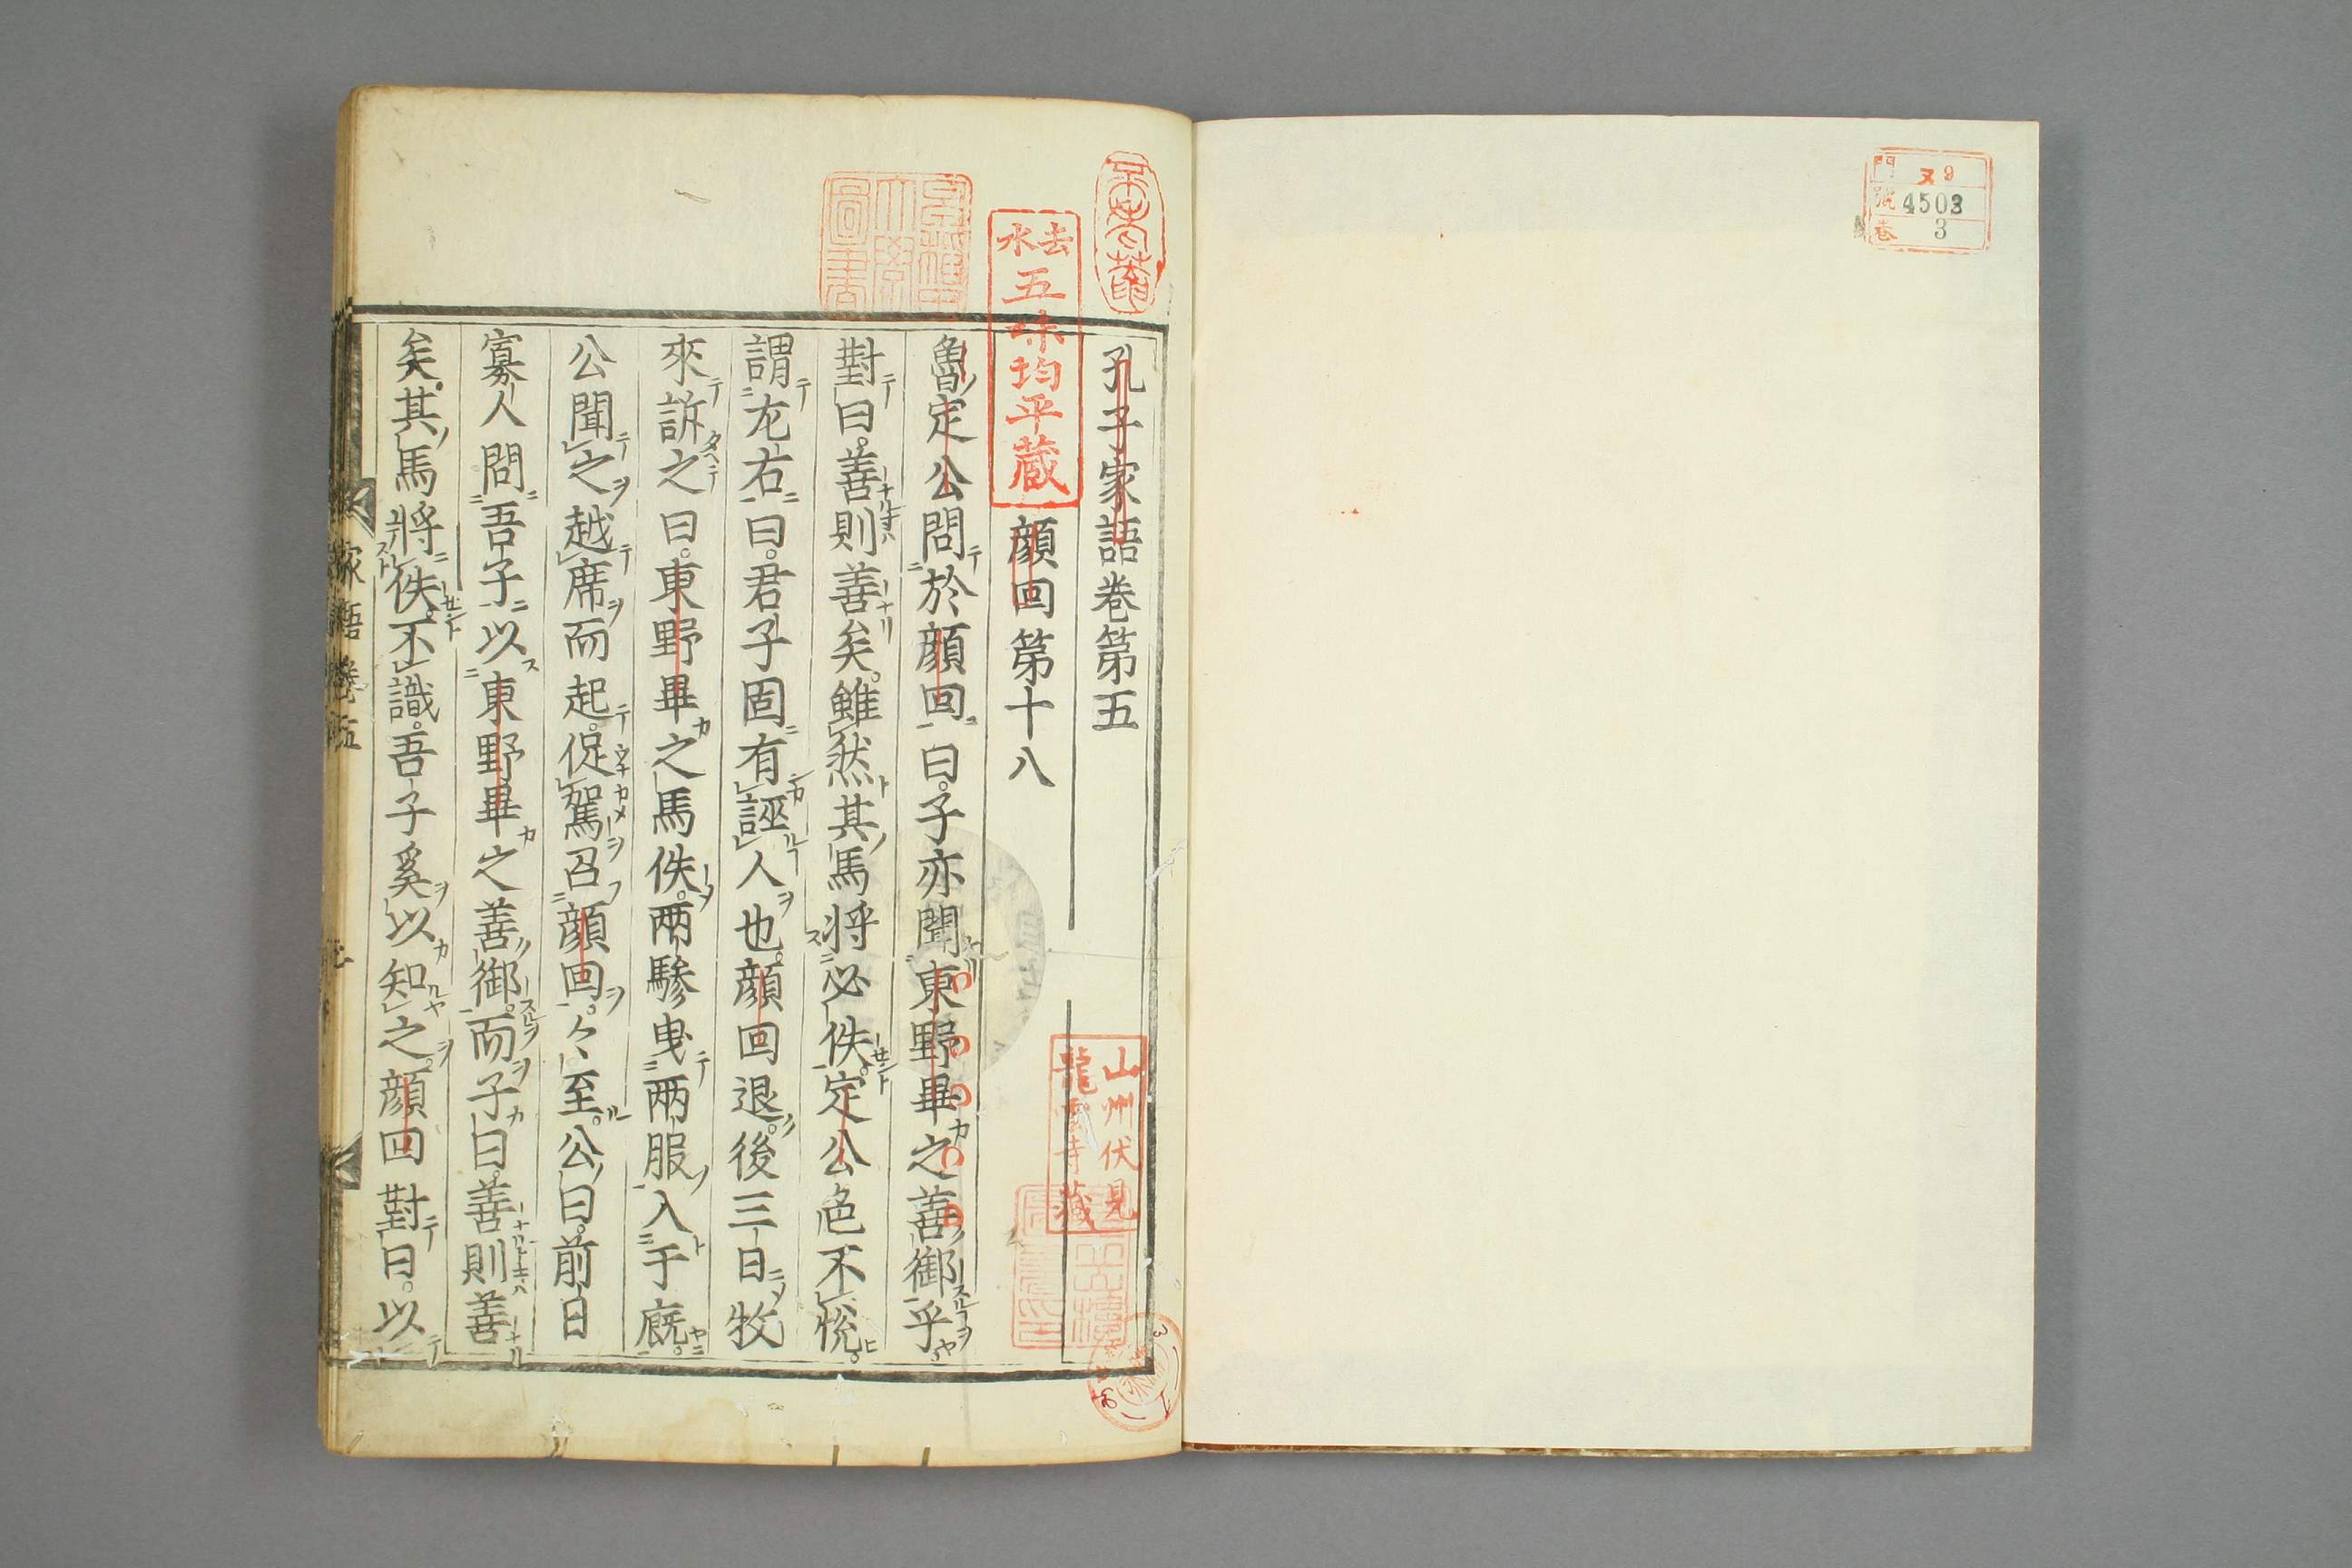 門 ヌ9
號 4503
巻 3
孔子家語巻第五
顔回第十八
去水
五味均平蔵
山州伏見
龍雲寺蔵
魯定公問於顔回曰。子亦聞東野畢之善御乎。
對曰。善則善矣。雖然其馬将必佚。定公色不悦。
謂左右曰。君子固有誣人也。顔回退。後三日牧
來訴之曰。東野畢之馬佚。两驂曳两服入于廐。
公聞之越席而起。促駕召顔回。々至。公曰。前日
寡人問吾子以東野畢之善御。而子曰。善則善
矣。其馬將佚。不識。吾子奚以知之。顔回對曰。以
家語巻五